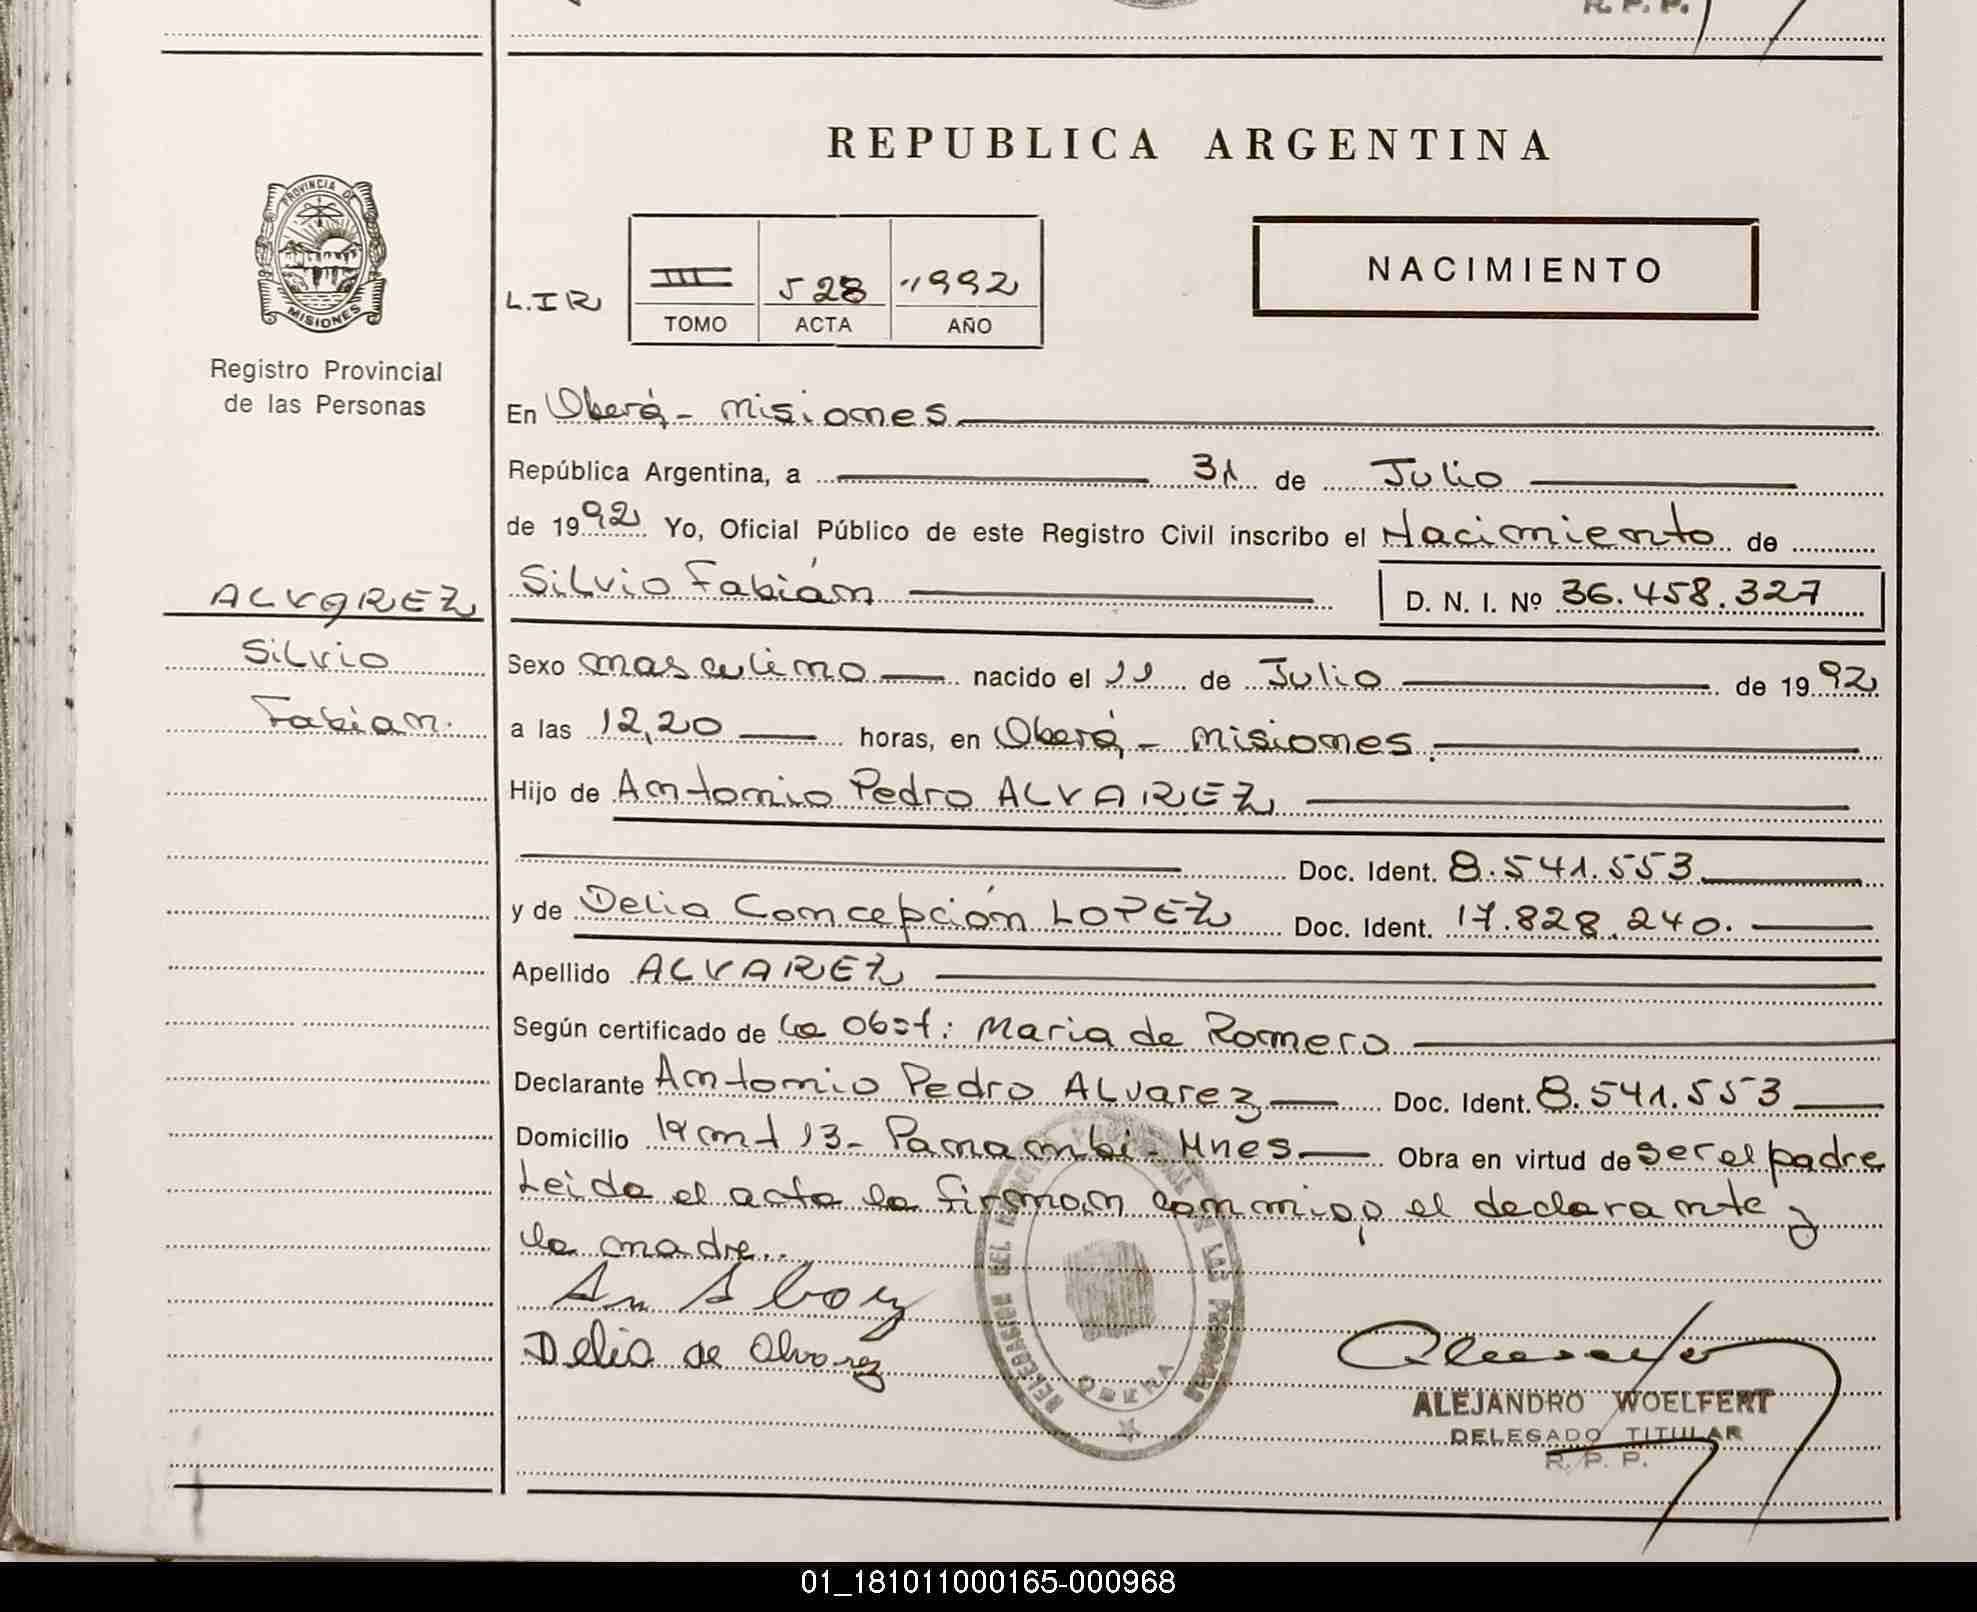 R. P. P.
REPUBLICA ARGENTINA
PROVINCIA DE
MISIONES
Registro Provincial
de las Personas
L.I R
III 528 1992
TOMO ACTA AÑO
NACIMIENTO
En Oberá - Misiones
República Argentina, a 31 de Julio
de 1992 Yo, Oficial Público de este Registro Civil inscribo el Nacimiento de
ALVAREZ
Silvio
Fabian.
Silvio Fabián D. N. I. Nº 36.458.327
Sexo masculino nacido el 11 de Julio de 1992
a las 12,20 horas, en Oberá - Misiones.
Hijo de Antonio Pedro ALVAREZ
Doc. Ident. 8.541.553
y de Delia Concepción LOPEZ Doc. Ident. 17.828.240.
Apellido ALVAREZ
Según certificado de la Obst: Maria de Romero
Declarante Antonio Pedro ALvarez Doc. Ident. 8.541.553
Domicilio 13 - Panambi - Mnes Obra en virtud de ser el padre
Leida el acta la firman conmigo el declarante y
la madre..
Delia de Alvarez
OBERA
ALEJANDRO WOELFERT
DELEGADO TITULAR
R. P. P.
01_181011000165-000968